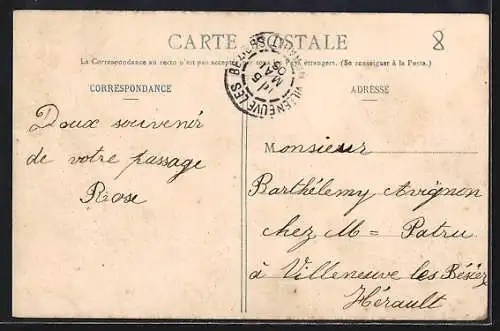 CARTE POSTALE
La Correspondance au recto n'est pas acceptée par tous les Pays étrangers. (Se renseigner à la Poste.)
CORRESPONDANCE
ADRESSE
VILLENEUVE-LES-BEZIERS
Doux souvenir
de votre passage
Rose
Monsieur
Barthélemy Avignon
chez M = Patru
à Villeneuve les Béziez
Hérault
8